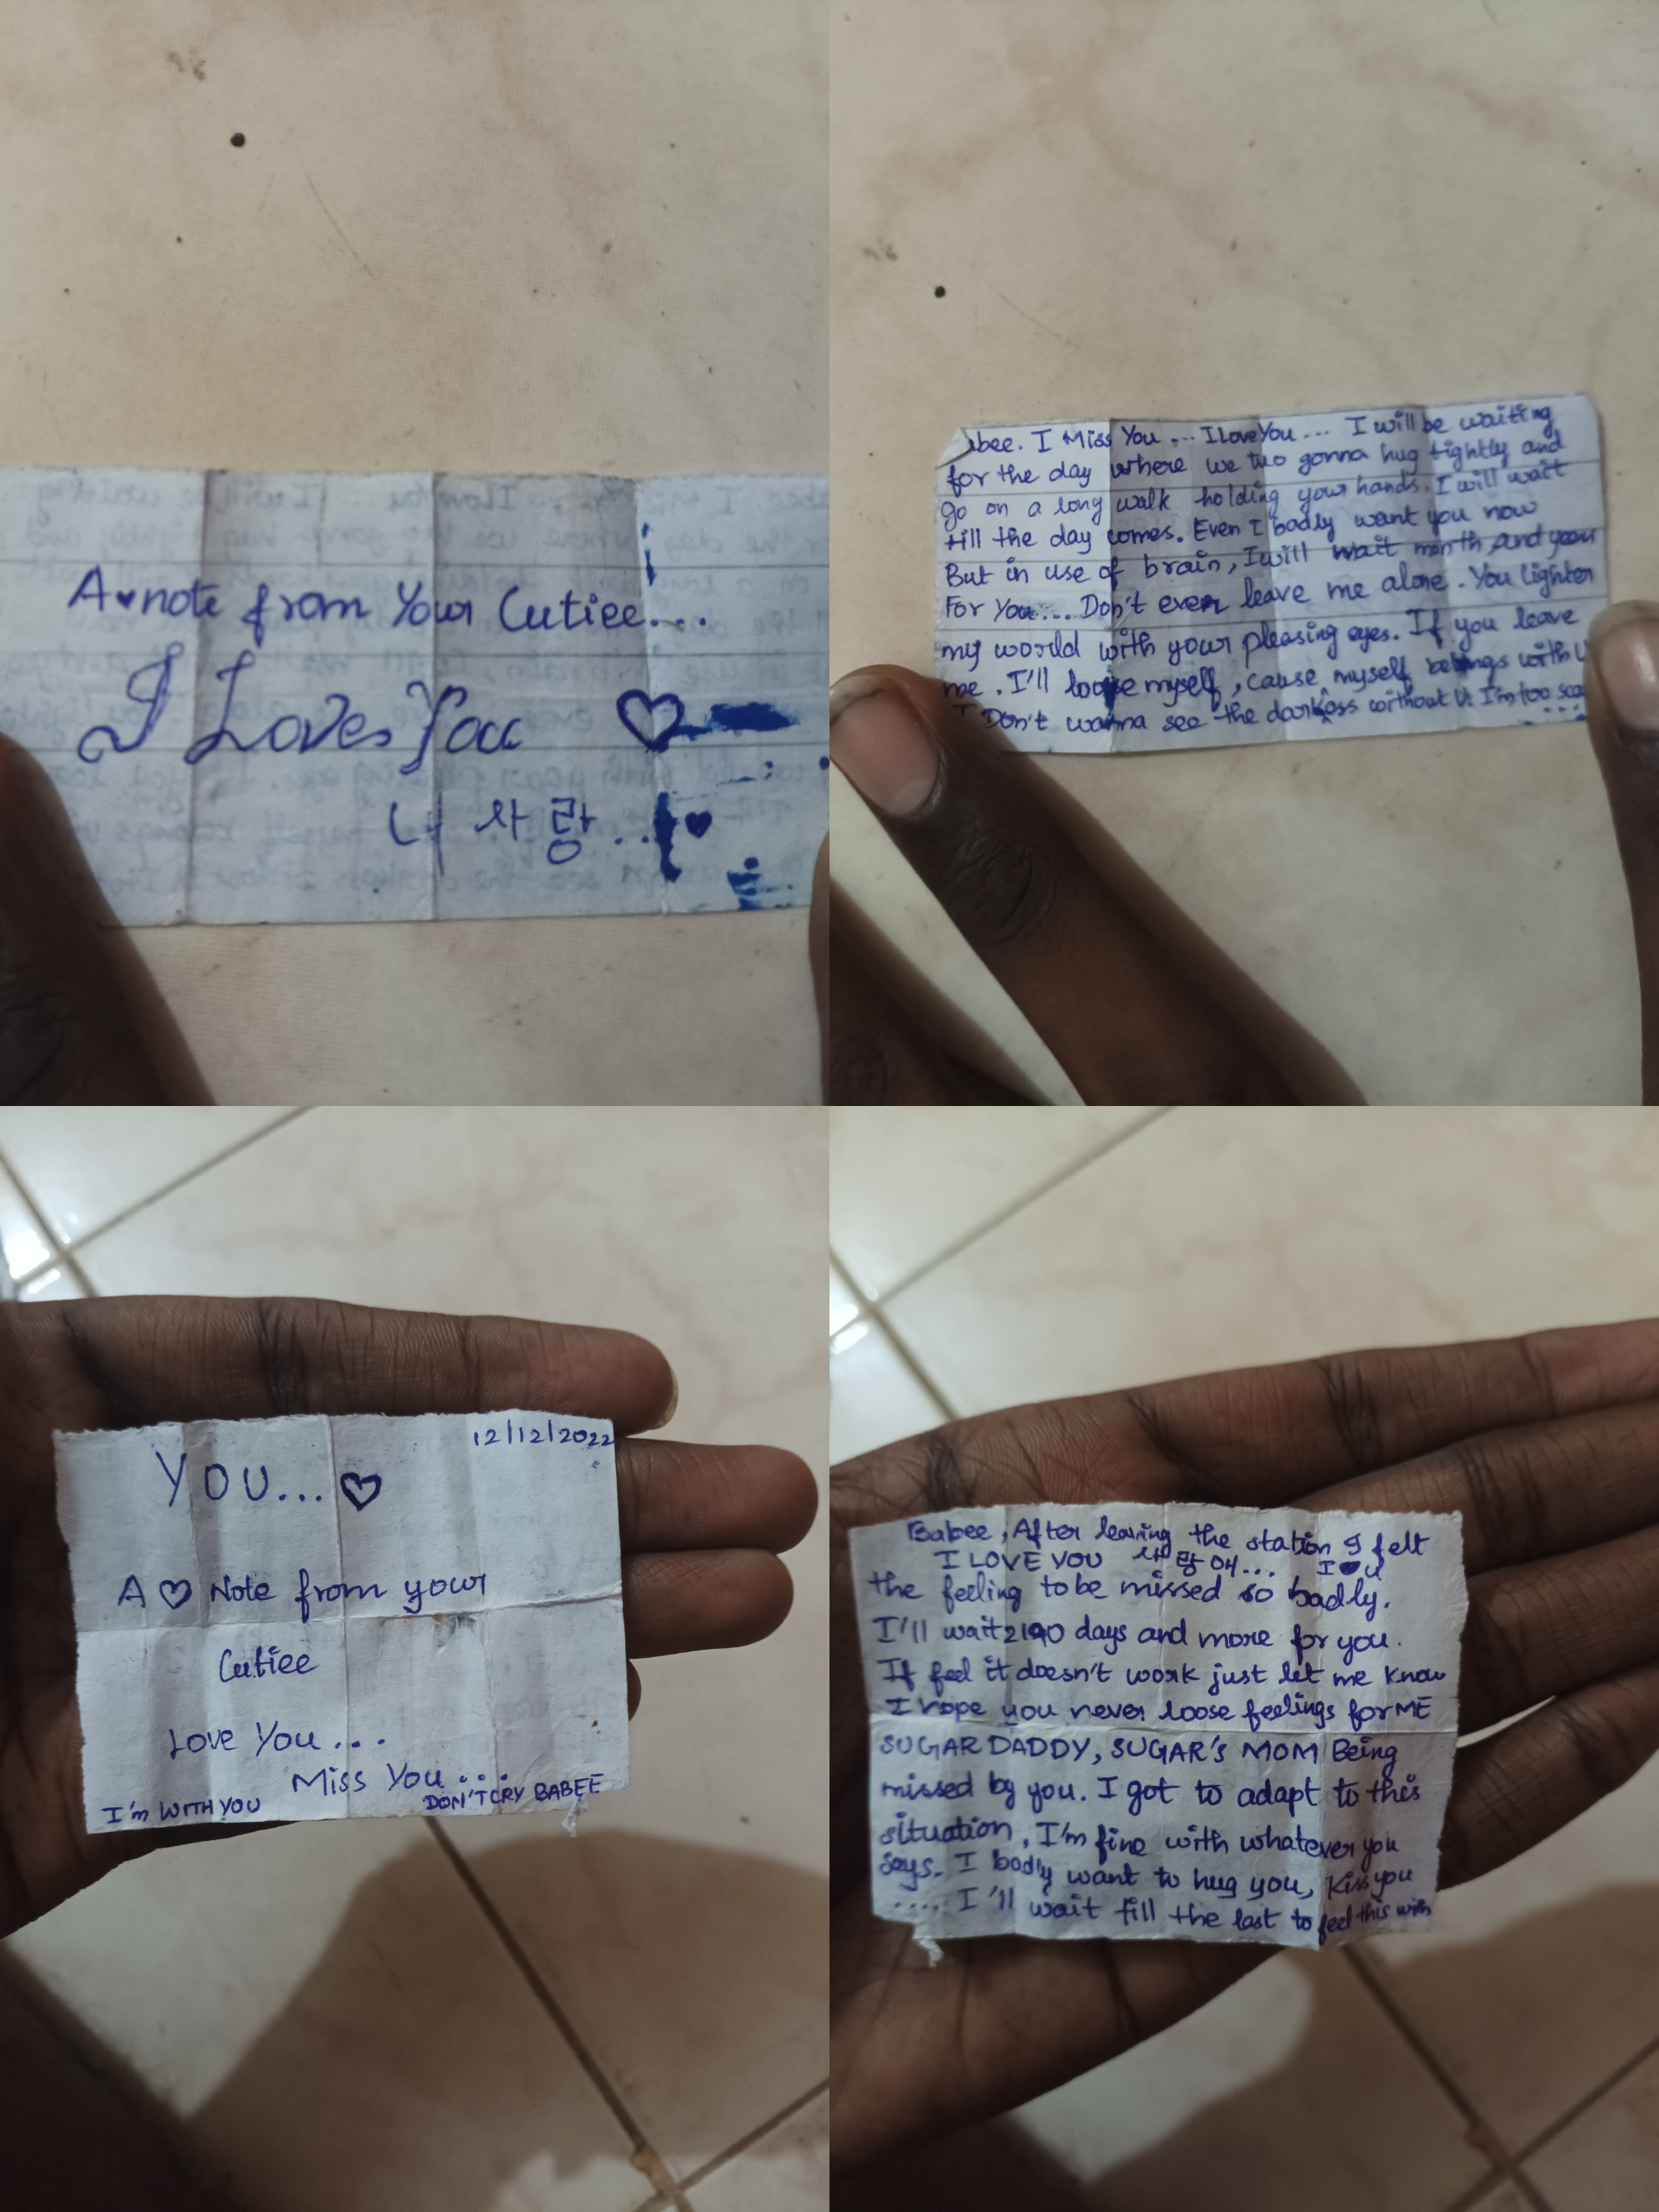 A♥note from Your Cutiee...
I Loves You ♡
너 사랑...♥
abee. I Miss You ... I Love You ... I will be waiting
for the day where we two gonna hug tightly and
go on a long walk holding your hands. I will wait
till the day comes. Even I badly want you now
But in use of brain, I will wait month and years
For You... Don't ever leave me alone. You lighter
my world with your pleasing eyes. If you leave
me. I'll loose myself, cause myself belongs with U
I Don't wanna see the darkess without U. I'm too sca
....
12/12/2022
YOU...♡
A ♡ Note from your
Cutiee
Love You...
Miss You...
I'm WITH YOU DON'T CRY BABEE
Babee, After leaving the station I felt
I LOVE YOU 사랑애... I ♥ u
the feeling to be missed so badly.
I'll wait 2190 days and more for you.
If feel it doesn't work just let me know
I hope you never loose feelings for ME
SUGAR DADDY, SUGAR'S MOM Being
missed by you. I got to adapt to this
situation, I'm fine with whatever you
says. I badly want to hug you, Kiss you
.... I'll wait till the last to feel this with